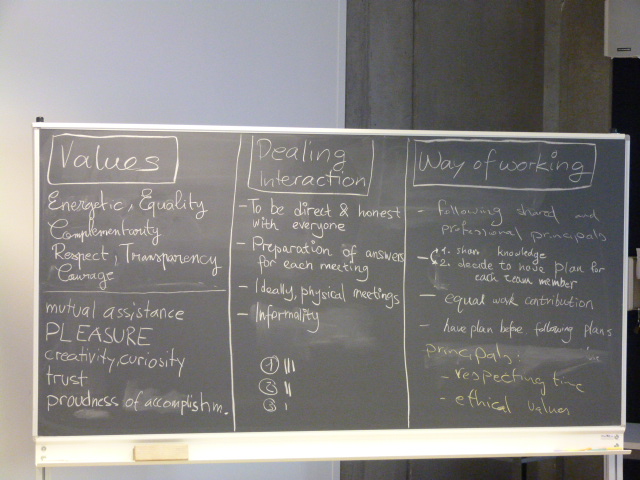 Values
Energetic, Equality
Complementarity
Respect, Transparency
Courage
mutual assistance
PLEASURE
creativity, curiosity
trust
proudness of accomplishm.
Dealing
Interaction
- To be direct & honest
with everyone
- Preparation of answers
for each meeting
- Ideally, physical meetings
- Informality
1 III
2 II
3 I
Way of working
- following shared and
professional principals
- 1. share knowledge
2. decide to have plan for
each team member
- equal work contribution
- have plan before following plans
principals:
- respecting time
- ethical values